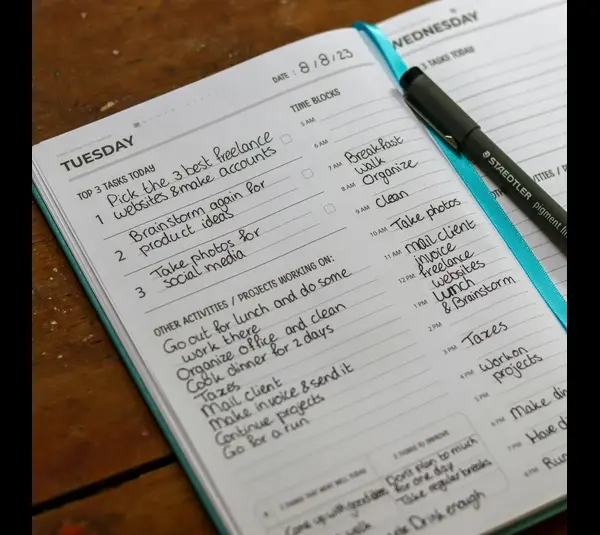 TUESDAY
DATE : 8/8/23
TOP 3 TASKS TODAY
1 Pick the 3 best freelance
websites & make accounts
2 Brainstorm again for
product ideas
3 Take photos for
social media
OTHER ACTIVITIES / PROJECTS WORKING ON:
Go out for lunch and do some
work there
Organize office and clean
Cook dinner for 2 days
Taxes
Mail client
Make invoice & send it
Continue projects
Go for a run
TIME BLOCKS
5 AM
6 AM
7 AM Breakfast
walk
8 AM Organize
9 AM clean
10 AM Take photos
11 AM mail client
invoice
12 PM freelance
websites
1 PM Lunch
& Brainstorm
2 PM
3 PM Taxes
4 PM work on
projects
5 PM
6 PM Make din
7 PM Have d
8 PM Run
3 THINGS THAT WENT WELL TODAY
Come up with good ideas
walk
3 THINGS TO IMPROVE
Don't plan to much
for one day
Take regular breaks
Drink enough
WEDNESDAY
3 TASKS TODAY
VITIES / PRO
STAEDTLER
pigment lin